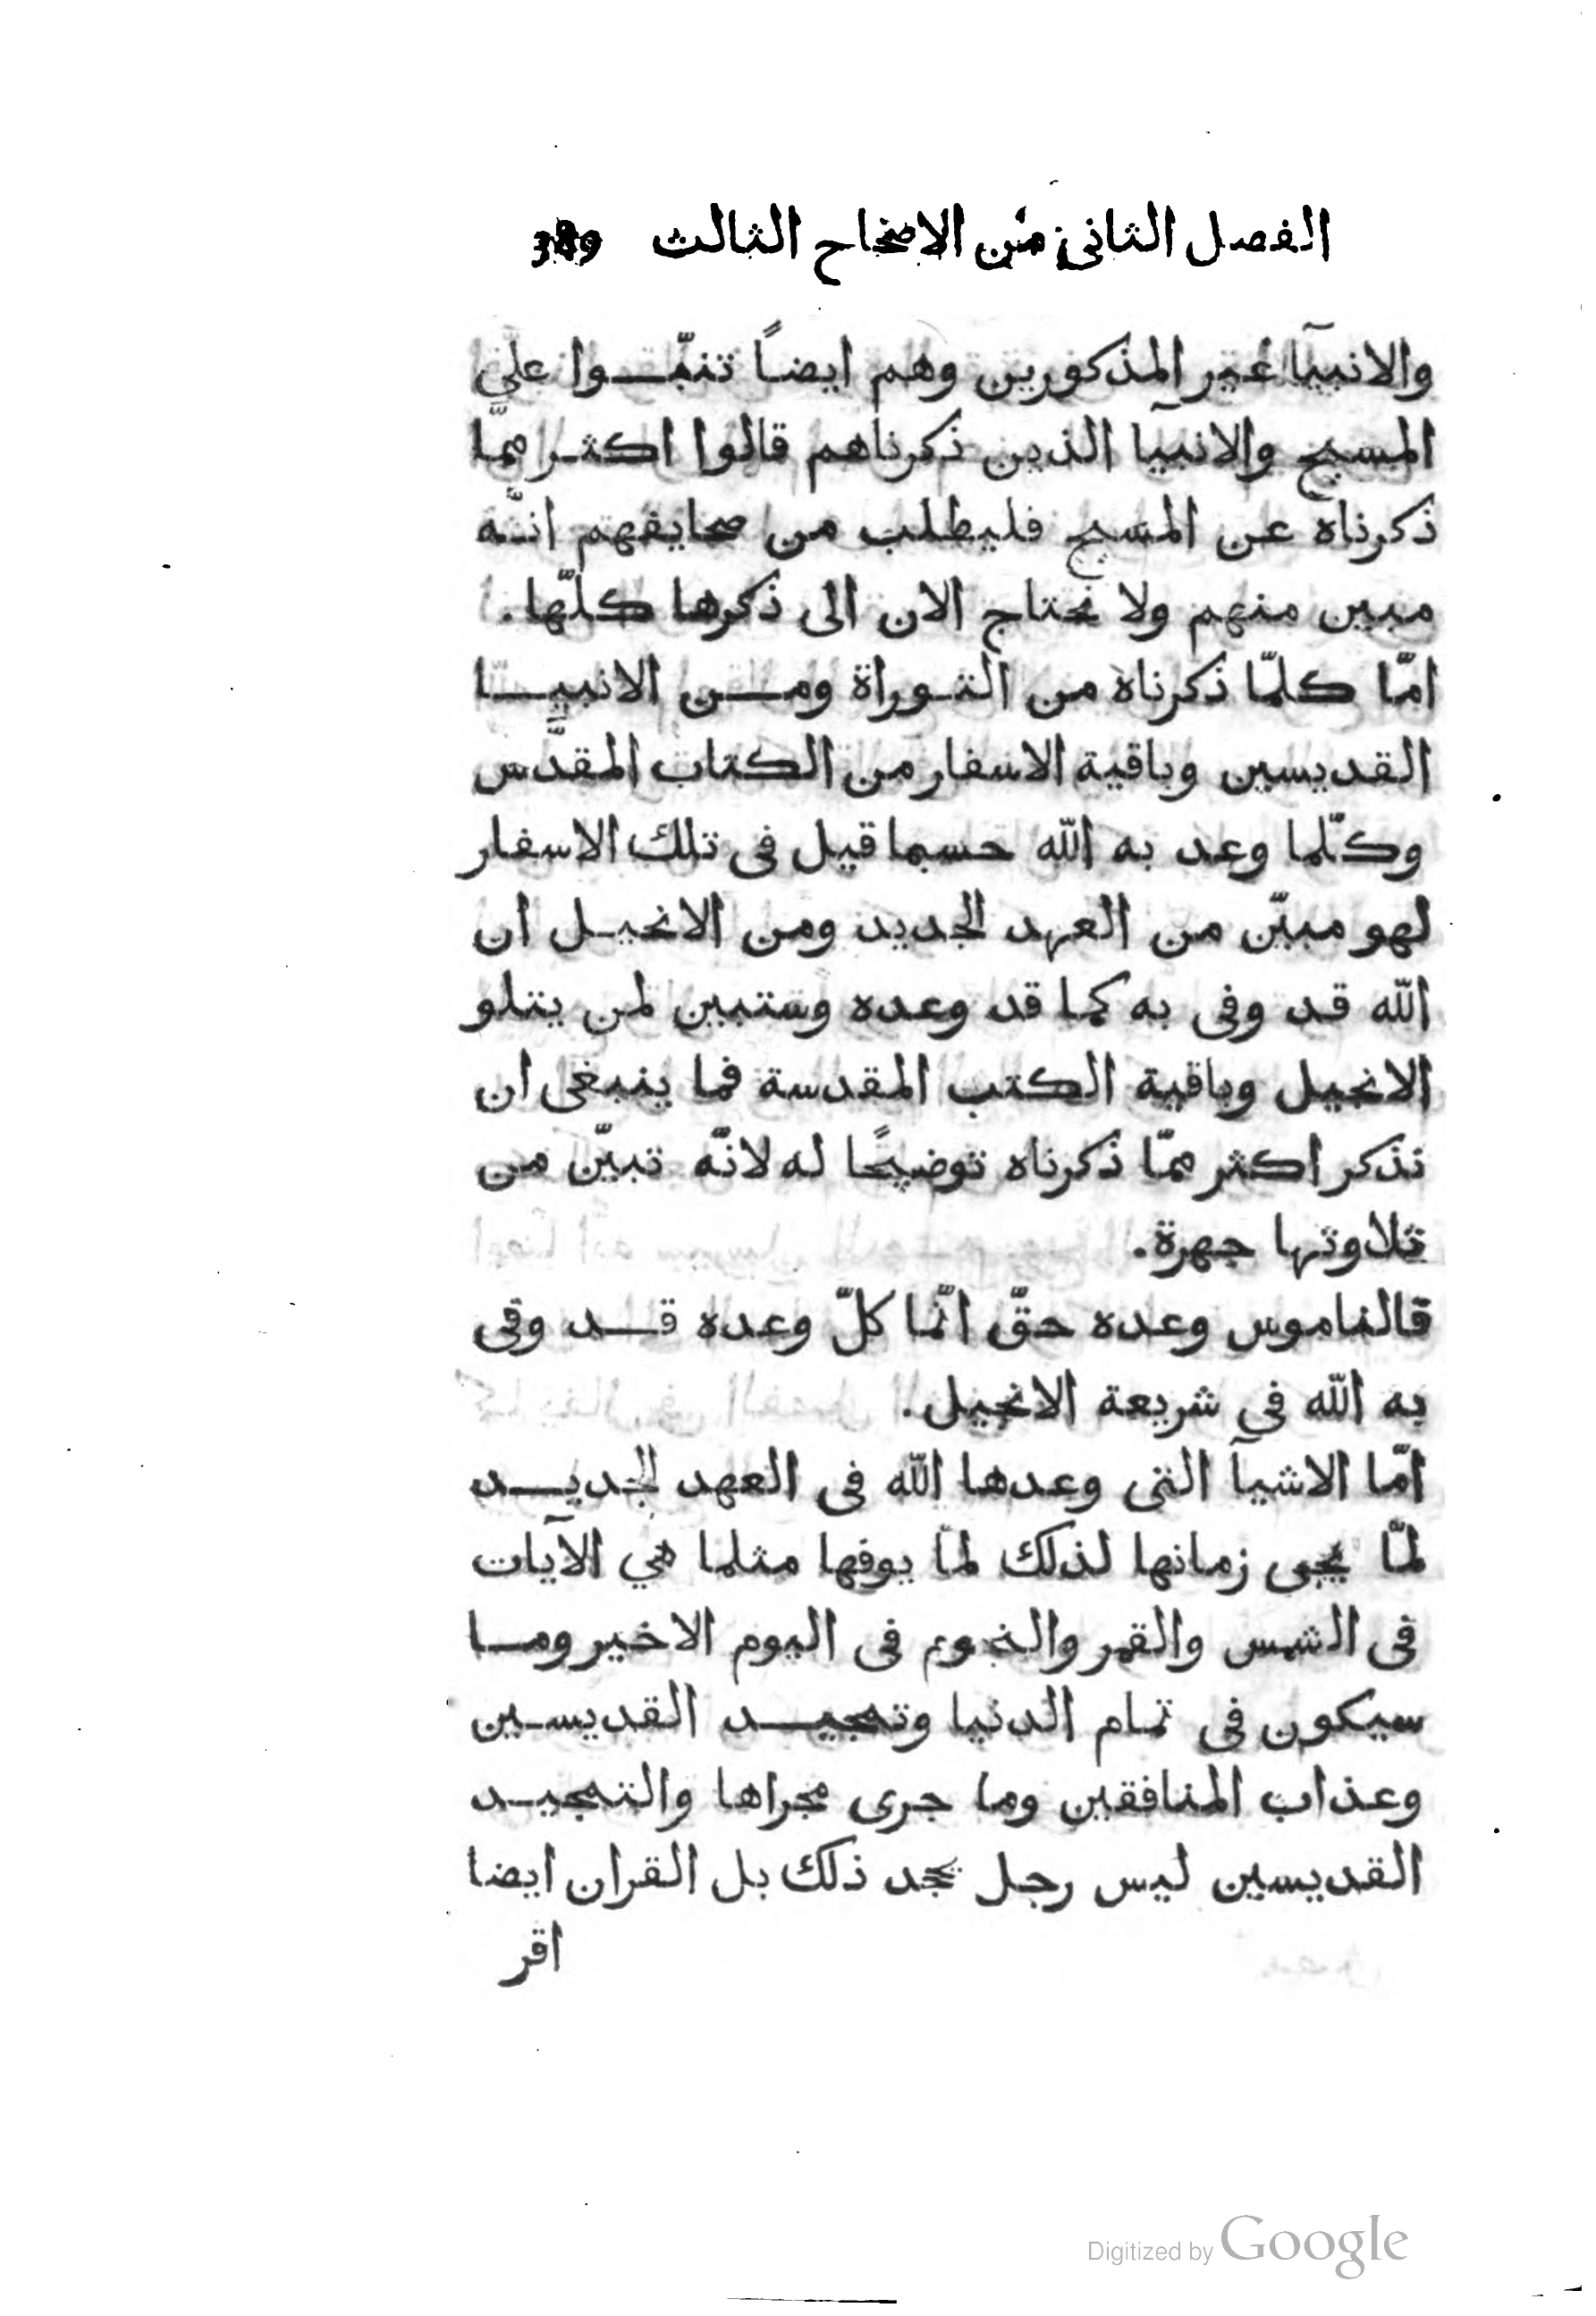 الفصل الثانى من الاصحاح الثالث 389
والانبيآ غير المذكورين وهم ايضاً تنبّوا علىّ
المسيح والانبيآ الذين ذكرناهم قالوا اكثر ممّا
ذكرناه عن المسيح فليطلب من صحايفهم انّه
مبين منهم ولا نحتاج الان الى ذكرها كلّها.
امّا كلمّا ذكرناه من التوراة ومن الانبيا
القديسين وباقية الاسفار من الكتاب المقدَّس
وكلّما وعد به اللّه حسبما قيل فى تلك الاسفار
لهو مبيّن من العهد الجديد ومن الانجيل ان
اللّه قد وفى به كما قد وعده وستبين لمن يتلو
الانجيل وباقية الكتب المقدسة فما ينبغى ان
نذكر اكثر ممّا ذكرناه توضيحًا له لانّه تبيّن من
تلاوتها جهرة.
فالناموس وعده حقّ انّما كلّ وعده قد وفى
به اللّه فى شريعة الانجيل.
امّا الاشيآ التى وعدها اللّه فى العهد الجديد
لمّا يجى زمانها لذلك لمّا يوفها مثلما هي الآيات
فى الشمس والقمر والنجوم فى اليوم الاخير وما
سيكون فى تمام الدنيا وتمجيد القديسين
وعذاب المنافقين وما جرى مجراها والتمجيد
القديسين ليس رجل يجحد ذلك بل القران ايضا
اقر
Digitized by Google